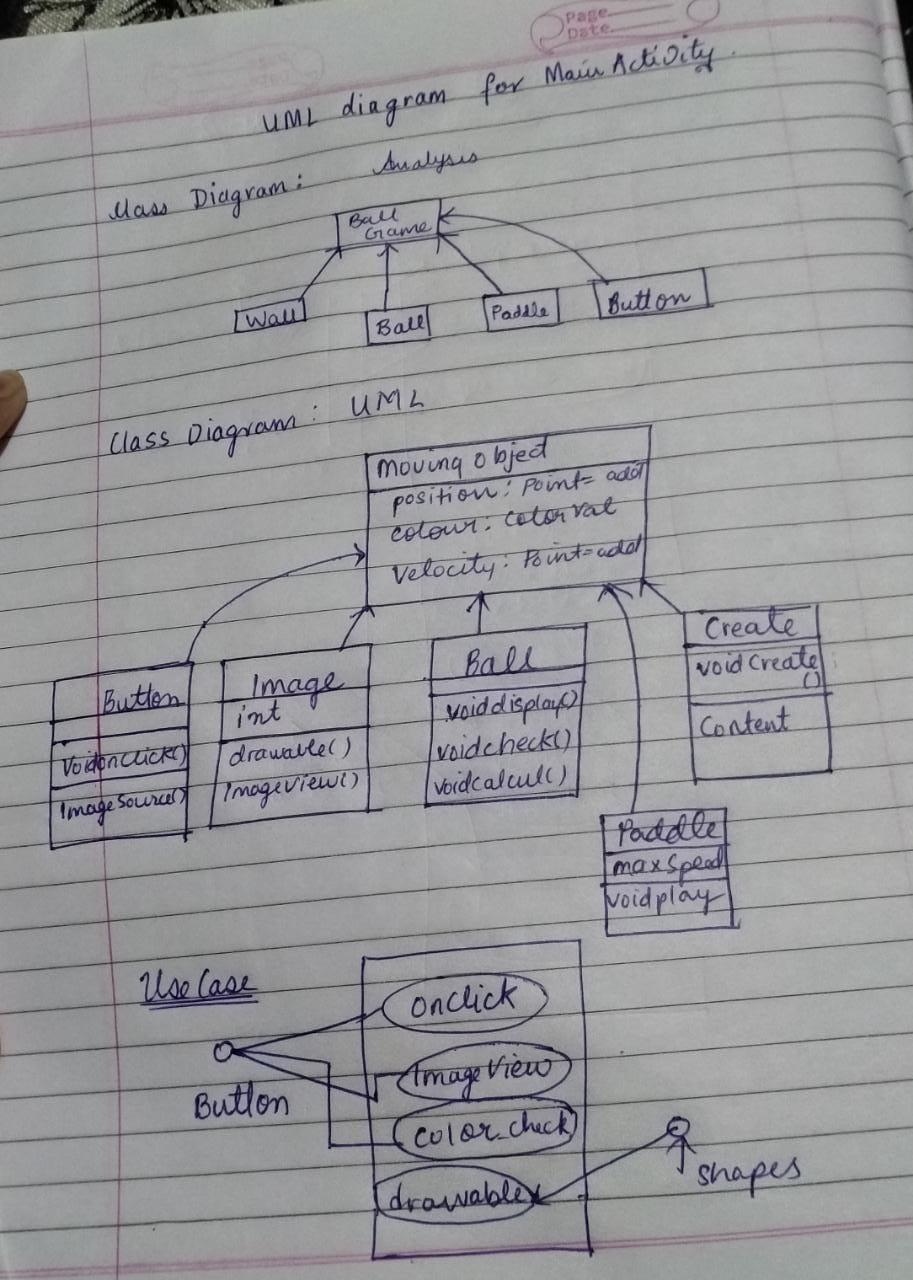 Page
Date
UML diagram for Main Activity.
Class Diagram: Analysis
Ball
Game
Wall
Ball
Paddle
Button
Class Diagram: UML
Moving Object
position: Point= add
colour: Colorval
Velocity: Point=add
Button
Voidonclick()
ImageSource()
Image
int
drawable()
ImageView()
Ball
voiddisplay()
voidcheck()
voidcalcul()
Create
void Create
()
Content
Paddle
maxspeed
voidplay
Use Case
Button
Onclick
ImageView
Color_check
drawable
shapes